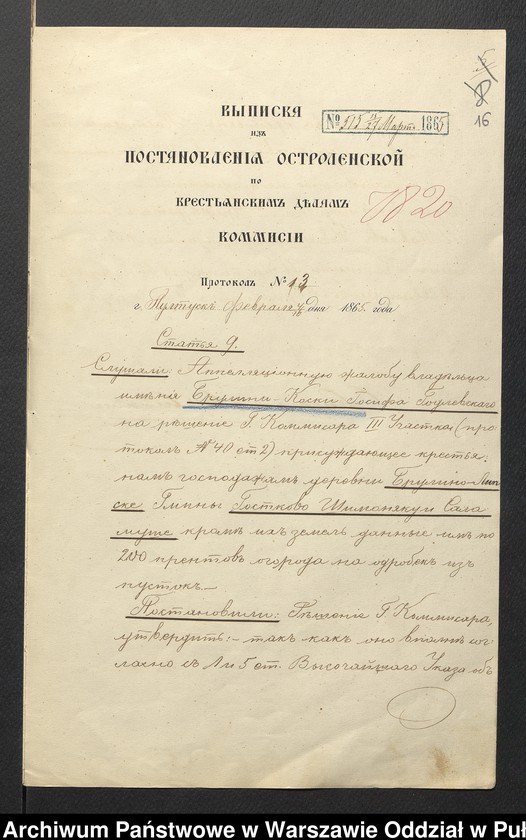 16
ВЫПИСКА
№ 515 27 Март. 1865
изъ
ПОСТАНОВЛЕНІЯ ОСТРОЛЕНСКОЙ
по
КРЕСТЬЯНСКИМЪ ДѢЛАМЪ
1820
КОММИСІИ
Протоколъ № 13
г. Пултускъ Февраля 4/16 дня 1865 года
Статья 9.
Слушали Аппелляціонную жалобу владѣльца
имѣнія Бружи-Коски Іосифа
на рѣшеніе Г. Коммисара III Участка (про
токолъ № 40 ст 2) присуждающее крестья
намъ господажамъ деревни
ске Гмины Гостково Шимоняку и Сала
мухе кромѣ ихъ земель данные имъ по
200 прентовъ огорода на одробекъ изъ
пустокъ.—
Постановили: Рѣшеніе Г. Коммисара,
утвердить:— такъ какъ оно вполнѣ сог
ласно съ 1 и 5 ст. Высочайшаго Указа объ
Archiwum Państwowe w Warszawie Oddział w Puł